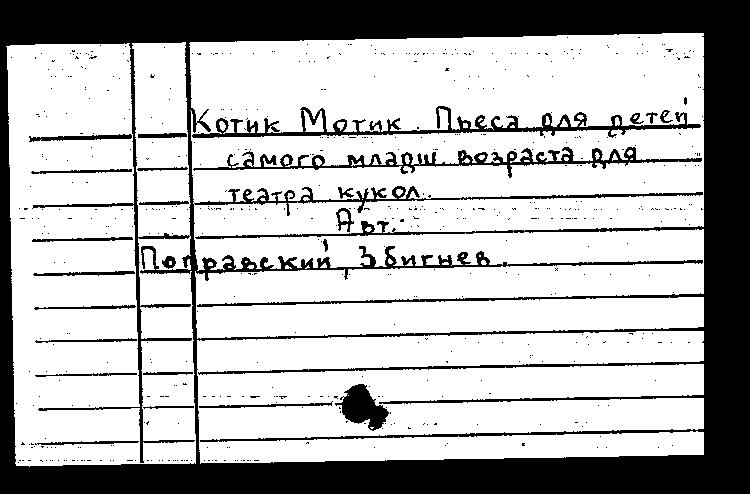 Котик Мотик. Пьеса для детей
самого младш возраста для
театра кукол.
Авт.:
Поправский, Збигнев.